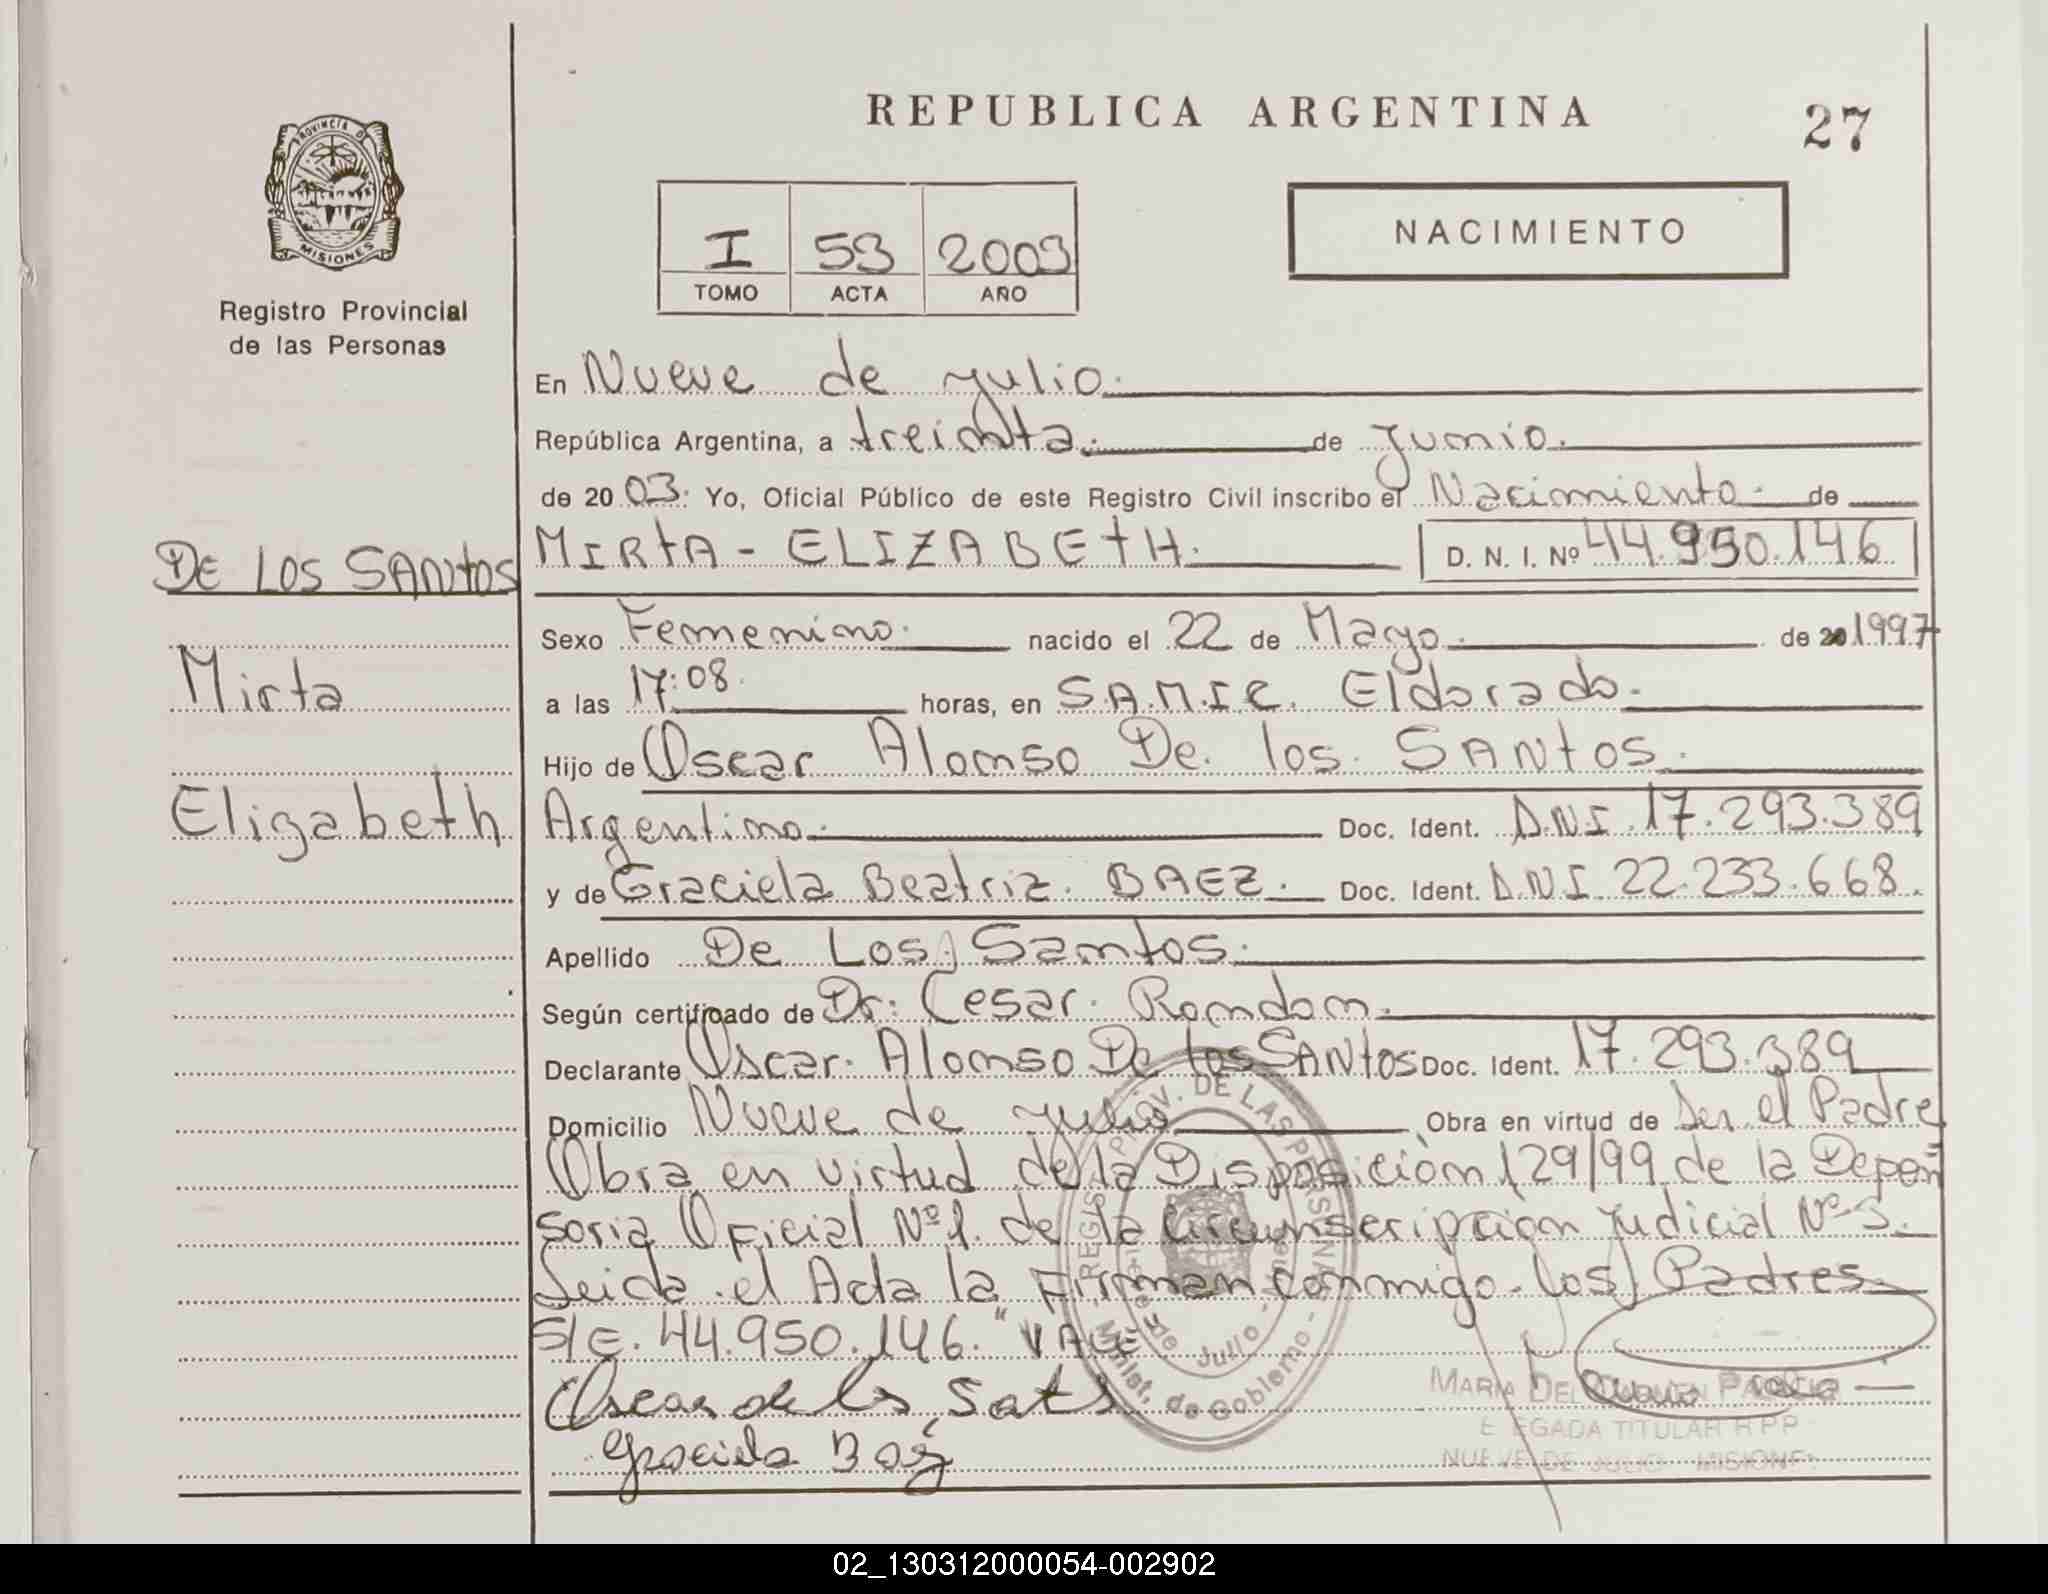 PROVINCIA DE
MISIONES
Registro Provincial
de las Personas
REPUBLICA ARGENTINA
27
I 53 2003
TOMO ACTA AÑO
NACIMIENTO
En Nueve de julio.
República Argentina, a treinta. de junio.
de 2003. Yo, Oficial Público de este Registro Civil inscribo el Nacimiento. de
DE LOS SANtOS
Mirta
Elizabeth
MIRtA - ELIZABEtH. D. N. I. Nº 44.950.146
Sexo Femenino. nacido el 22 de Mayo. de 20 1997
a las 17:08. horas, en S.A.M.I.C. Eldorado.
Hijo de Oscar Alonso De los SANtOS.
Argentino. Doc. Ident. D.N.I. 17.293.389
y de Graciela Beatriz. BAEZ. Doc. Ident. D.N.I. 22.233.668.
Apellido De Los Santos.
Según certificado de Dr: Cesar. Rondon.
Declarante Oscar. Alonso De los SANtOS Doc. Ident. 17.293.389
Domicilio Nueve de julio Obra en virtud de Ser el Padre
Obra en virtud de la Disposición 129/99 de la Defen
soria Oficial Nº 1. de la Circunscripcion judicial Nº 3.
Leida el Acta la Firman conmigo los Padres.
S/E. 44.950.146. "VALE"
Oscar de los Sats
Graciela Baez
REGIS PROV. DE LAS PERSONAS
Minist. de Gobierno
de Julio
MARIA DEL CARMEN
EGADA TITULAR R P P
NUEVE DE JULIO MISIONE
02_130312000054-002902